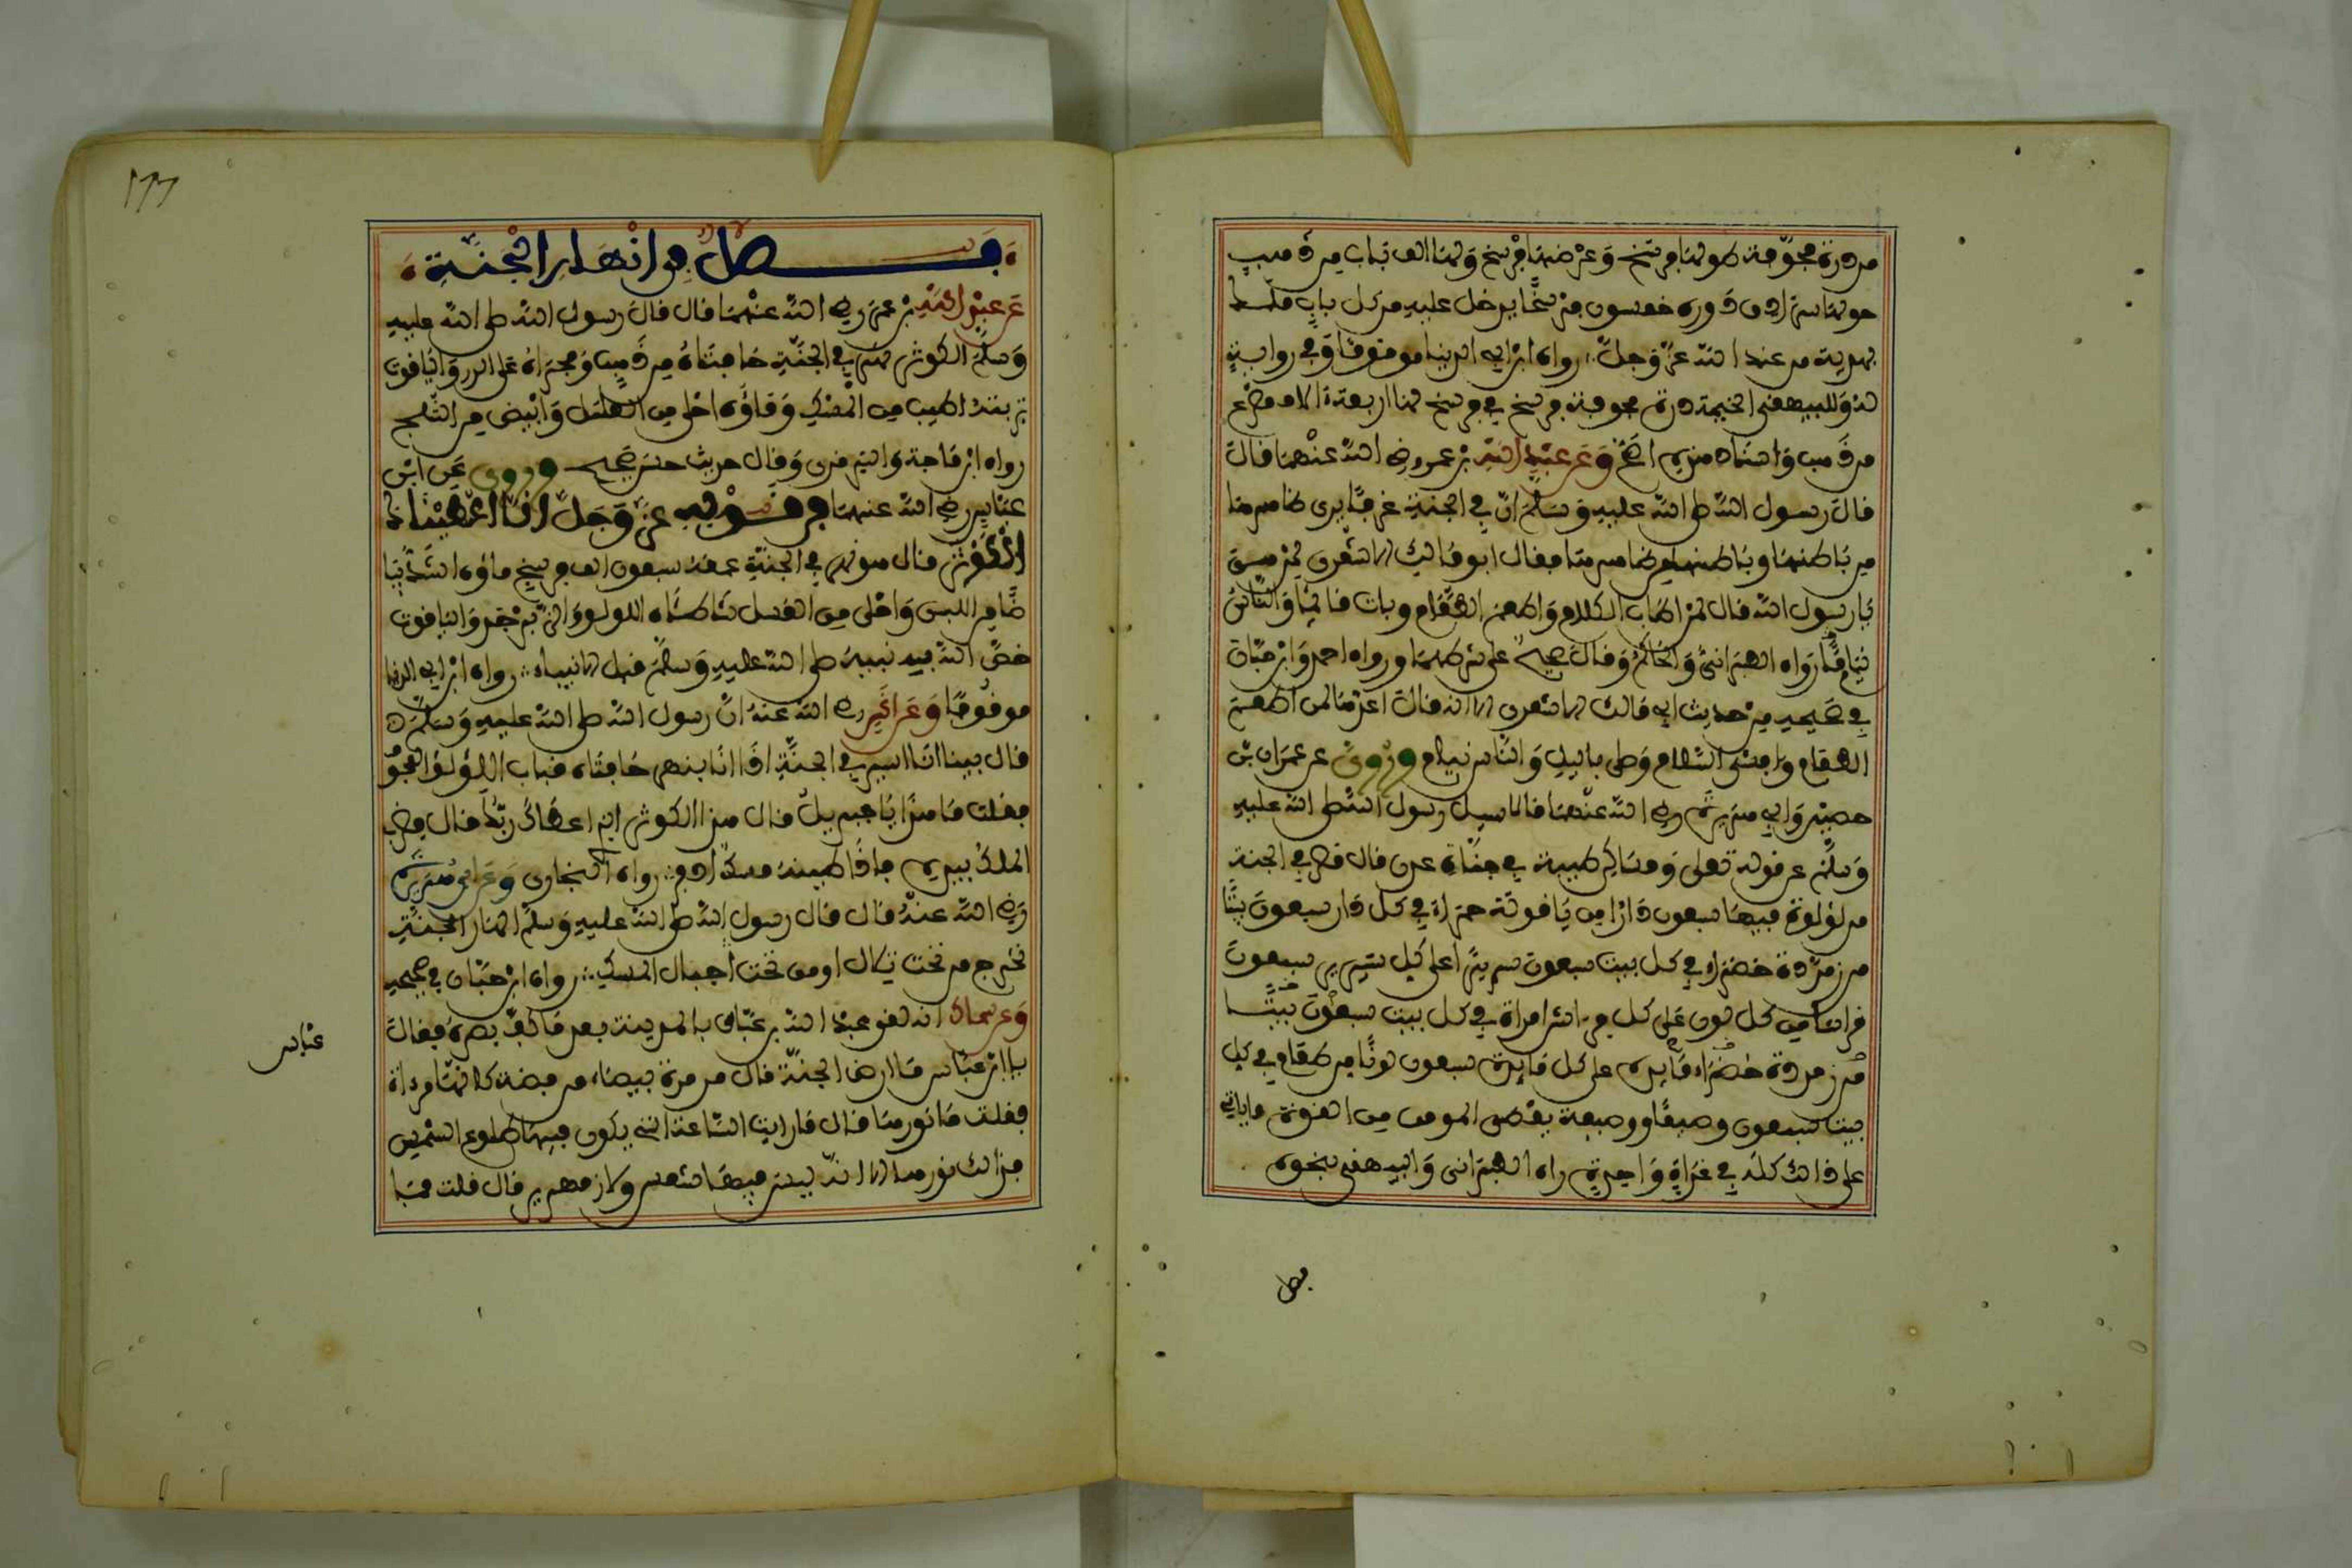 من درة مجوفة طولها فرسخ وعرضها فرسخ ولها الف باب من ذهب
حولها سرادق دوره خمسون فرسخا يدخل عليه من كل باب ملك
بهدية من عند الله عز وجل رواه ابن ابي الدنيا موقوفا وفي رواية
له وللبيهقي الخيمة درة مجوفة فرسخ في فرسخ لها اربعة الاف مصرع
من ذهب واسناد هذه اصح وعن عبد الله بن عمرو رضي الله عنهما قال
قال رسول الله صلى الله عليه وسلم ان في الجنة غرفا يرى ظاهرها
من باطنها وباطنها من ظاهرها فقال ابو مالك الاشعري لمن هي
يا رسول الله قال لمن اطاب الكلام واطعم الطعام وبات قائما والناس
نيام رواه الطبراني والحاكم وقال صحيح على شرطهما ورواه احمد وابن حبان
في صحيحه من حديث ابي مالك الاشعري الا انه قال اعدها لمن اطعم
الطعام وافشى السلام وصلى باليل والناس نيام وروي عن عمران بن
حصين وابي هريرة رضي الله عنهما قالا سيل رسول الله صلى الله عليه
وسلم عن قوله تعلى ومساكن طيبة في جنات عدن قال قصر في الجنة
من لؤلوة فيها سبعون دارا من ياقوتة حمراء في كل دار سبعون بيتا
من زمردة خضراء في كل بيت سبعون سريرا على كل سرير سبعون
فراشا من كل لون على كل فراش امراة في كل بيت سبعون بيتا
من زمردة خضراء مايدة على كل مايدة سبعون لونا من طعام في كل
بيت سبعون وصيفا ووصيفة يعطى المومن من القوة ما ياتي
على ذالك كله في غداة واحدة راه الطبراني والبيهقي بنحوه
فصل
١٦٦
فصل في انهار الجنة
عن عبد الله بن عمر رضي الله عنهما قال قال رسول الله صلى الله عليه
وسلم الكوثر نهر في الجنة حافتاه من ذهب ومجراه على الدر واليافوت
تربته اطيب من المسك وماؤه احلى من العسل وابيض من الثلج
رواه ابن ماجة والترمذي وقال حديث حسن صحيح وروي عن ابن
عباس رضي الله عنهما في قوله عز وجل انا اعطيناك
الكوثر قال هو نهر في الجنة عمقه سبعون الف فرسخ ماؤه اشد بيا
ضا من اللبن واحلى من العسل شاطئاه اللولو والزبرجد واليافوت
خص الله به نبيه صلى الله عليه وسلم قبل الانبياء رواه ابن ابي الدنيا
موقوفا وعن انس رضي الله عنه ان رسول الله صلى الله عليه وسلم
قال بينا انا اسير في الجنة اذا انا بنهر حافتاه قباب اللؤلؤ المجو
فقلت ما هذا يا جبريل قال هذا الكوثر الذي اعطاك ربك قال فضرب
الملك بيده فاذا طينه مسك اذفر رواه البخاري وعن ابي هريرة
رضي الله عنه قال قال رسول الله صلى الله عليه وسلم انهار الجنة
تخرج من تحت تلال او من تحت اجبال المسك رواه ابن حبان في صحيحه
وعن سماك انه لقي عبد الله بن عباس بالمدينة بعد ما كف بصره فقال
يا ابن عباس ما ارض الجنة قال من مرة بيضاء من فضة كانها مرءاة
فقلت ما نورها قال ما رايت الساعة التي يكون فيها طلوع الشمس
فذالك نورها الا انه ليس فيها شمس ولا زمهرير قال قلت فما
عباس